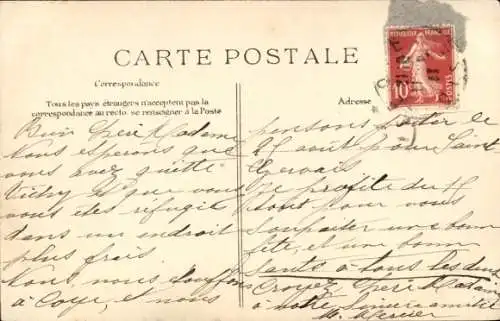 CARTE POSTALE
Correspondance
Tous les pays étrangers n'acceptent pas la
correspondance au recto, se renseigner à la Poste
Adresse
REPUBLIQUE FRANÇAISE
10
POSTES
Bien Chère Madame
Nous esperons que
vous avez quitté
Vichy et que vous
vous êtes réfugié
dans un endroit
plus frais
Nous, nous étouffons
à Coye, et nous
pensons quitter le
août pour Saint
Gervais
Je profite du
Aout pour vous
souhaiter une bonne
fête, et une bonne
Santé à tous les deux
Croyez Chère Madame
à notre sincère amitié
M. Mercier